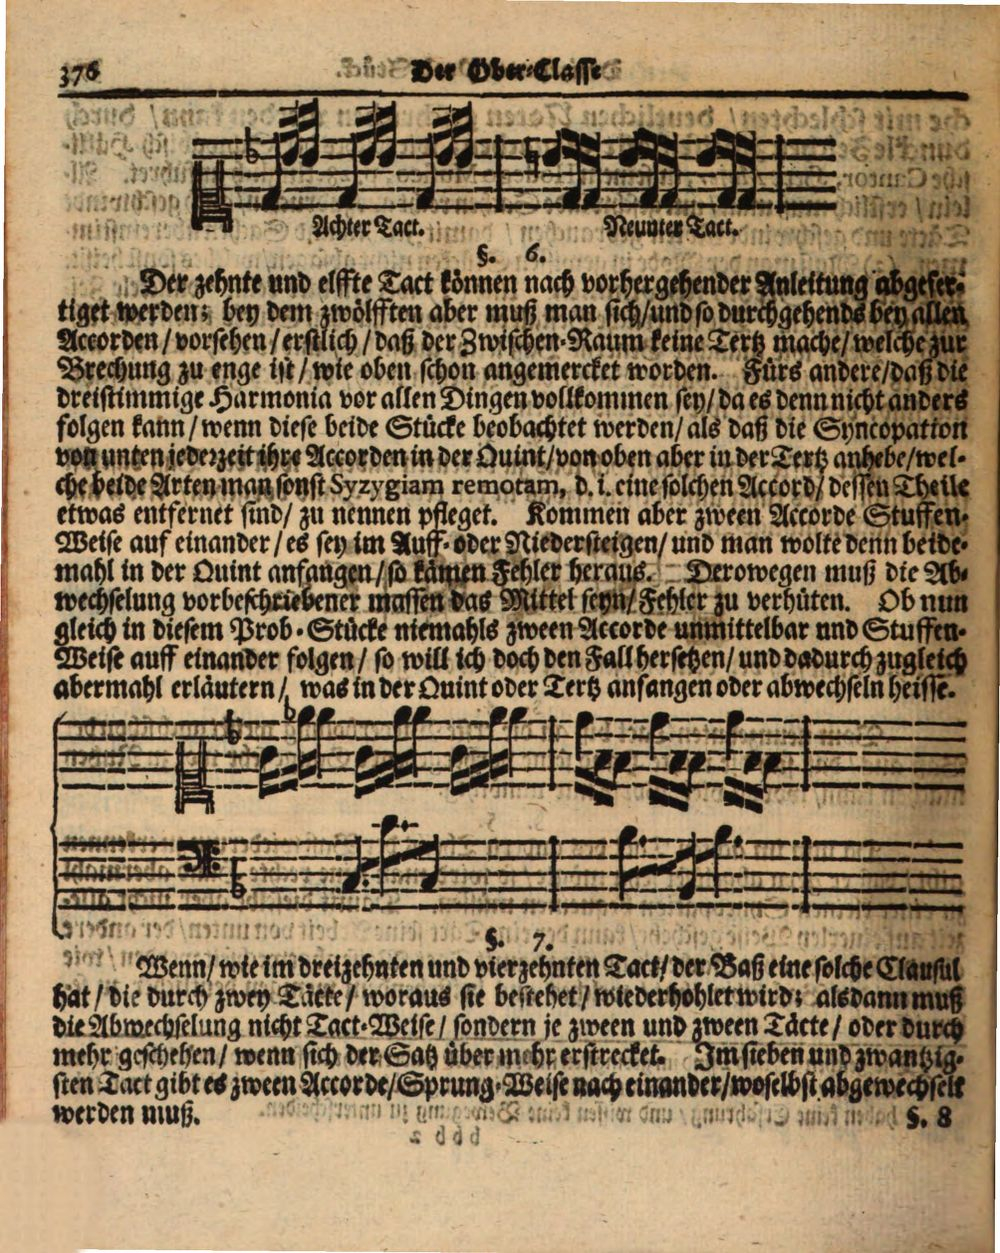 376
Der Ober-Classe
Achter Tact. Neunter Tact.
§. 6.
Der zehnte und elffte Tact können nach vorhergehender Anleitung abgefer-
tiget werden; bey dem zwölfften aber muß man sich/und so durchgehends bey allen
Accorden/vorsehen/erstlich/daß der Zwischen-Raum keine Tertz mache/welche zur
Brechung zu enge ist/wie oben schon angemercket worden. Fürs andere/daß die
dreistimmige Harmonia vor allen Dingen vollkommen sey/da es denn nicht anders
folgen kann/wenn diese beide Stücke beobachtet werden/als daß die Syncopation
von unten jederzeit ihre Accorden in der Quint/von oben aber in der Tertz anhebe/wel-
che beide Arten man sonst Syzygiam remotam, d. i. eine solchen Accord/dessen Theile
etwas entfernet sind/zu nennen pfleget. Kommen aber zween Accorde Stuffen-
Weise auf einander/es sey im Auff-oder Niedersteigen/und man wolte denn beide-
mahl in der Quint anfangen/so kämen Fehler heraus. Derowegen muß die Ab-
wechselung vorbeschriebener massen das Mittel seyn/Fehler zu verhüten. Ob nun
gleich in diesem Prob-Stücke niemahls zween Accorde unmittelbar und Stuffen-
Weise auff einander folgen/so will ich doch den Fall hersetzen/und dadurch zugleich
abermahl erläutern/was in der Quint oder Tertz anfangen oder abwechseln heisse.
§. 7.
Wenn/wie im dreizehnten und vierzehnten Tact/der Baß eine solche Clausul
hat/die durch zwey Täcte/woraus sie bestehet/wiederhohlet wird; alsdann muß
die Abwechselung nicht Tact-Weise/sondern je zween und zween Täcte/oder durch
mehr geschehen/wenn sich der Satz über mehr erstrecket. Im sieben und zwantzig-
sten Tact gibt es zween Accorde/Sprung-Weise nach einander/woselbst abgewechselt
werden muß.
§. 8